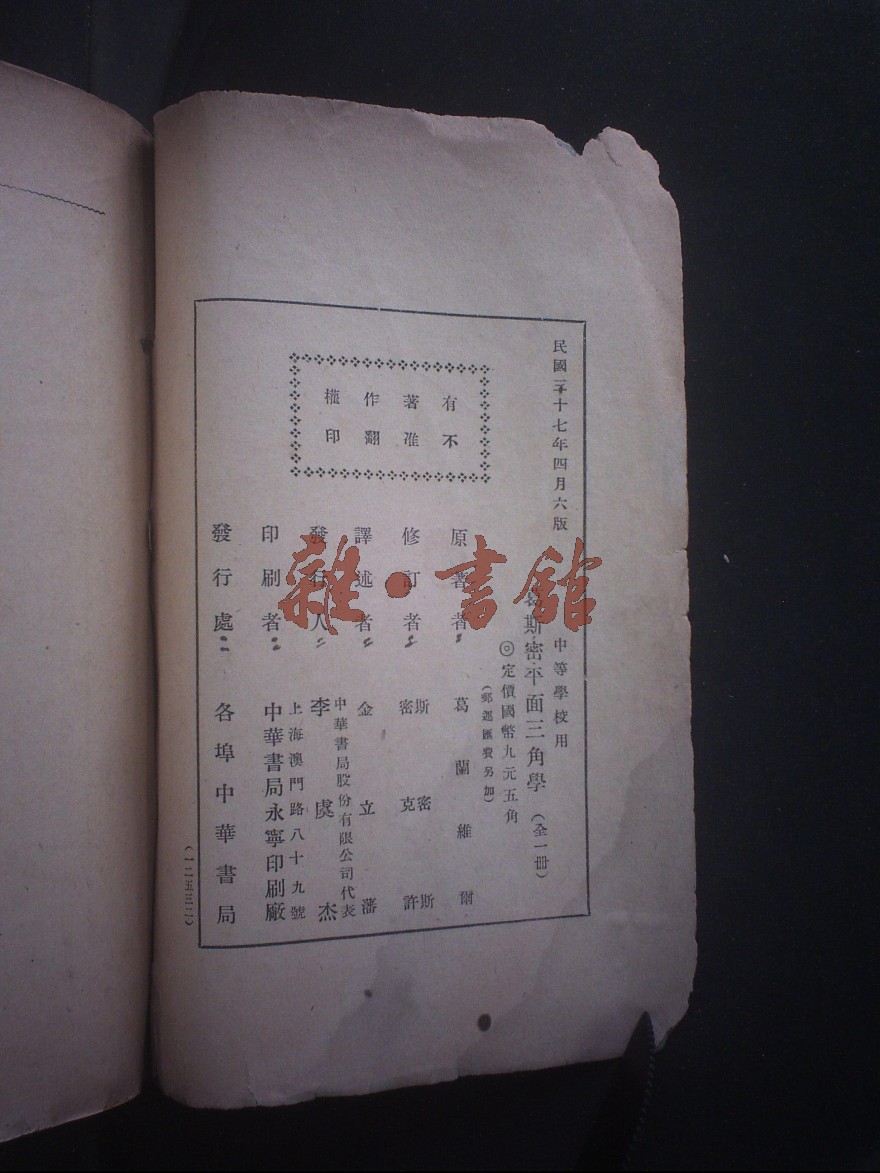 民國三十七年四月六版
中等學校用
葛斯密平面三角學（全一冊）
◎定價國幣九元五角
（郵運匯費另加）
有不
著准
作翻
權印
原著者 葛蘭維爾
修訂者 斯密斯
密克許
譯述者 金立藩
發行人 李虞杰
中華書局股份有限公司代表
印刷者 中華書局永寧印刷廠
上海澳門路八十九號
發行處 各埠中華書局
（一二五三二）
雜·書館